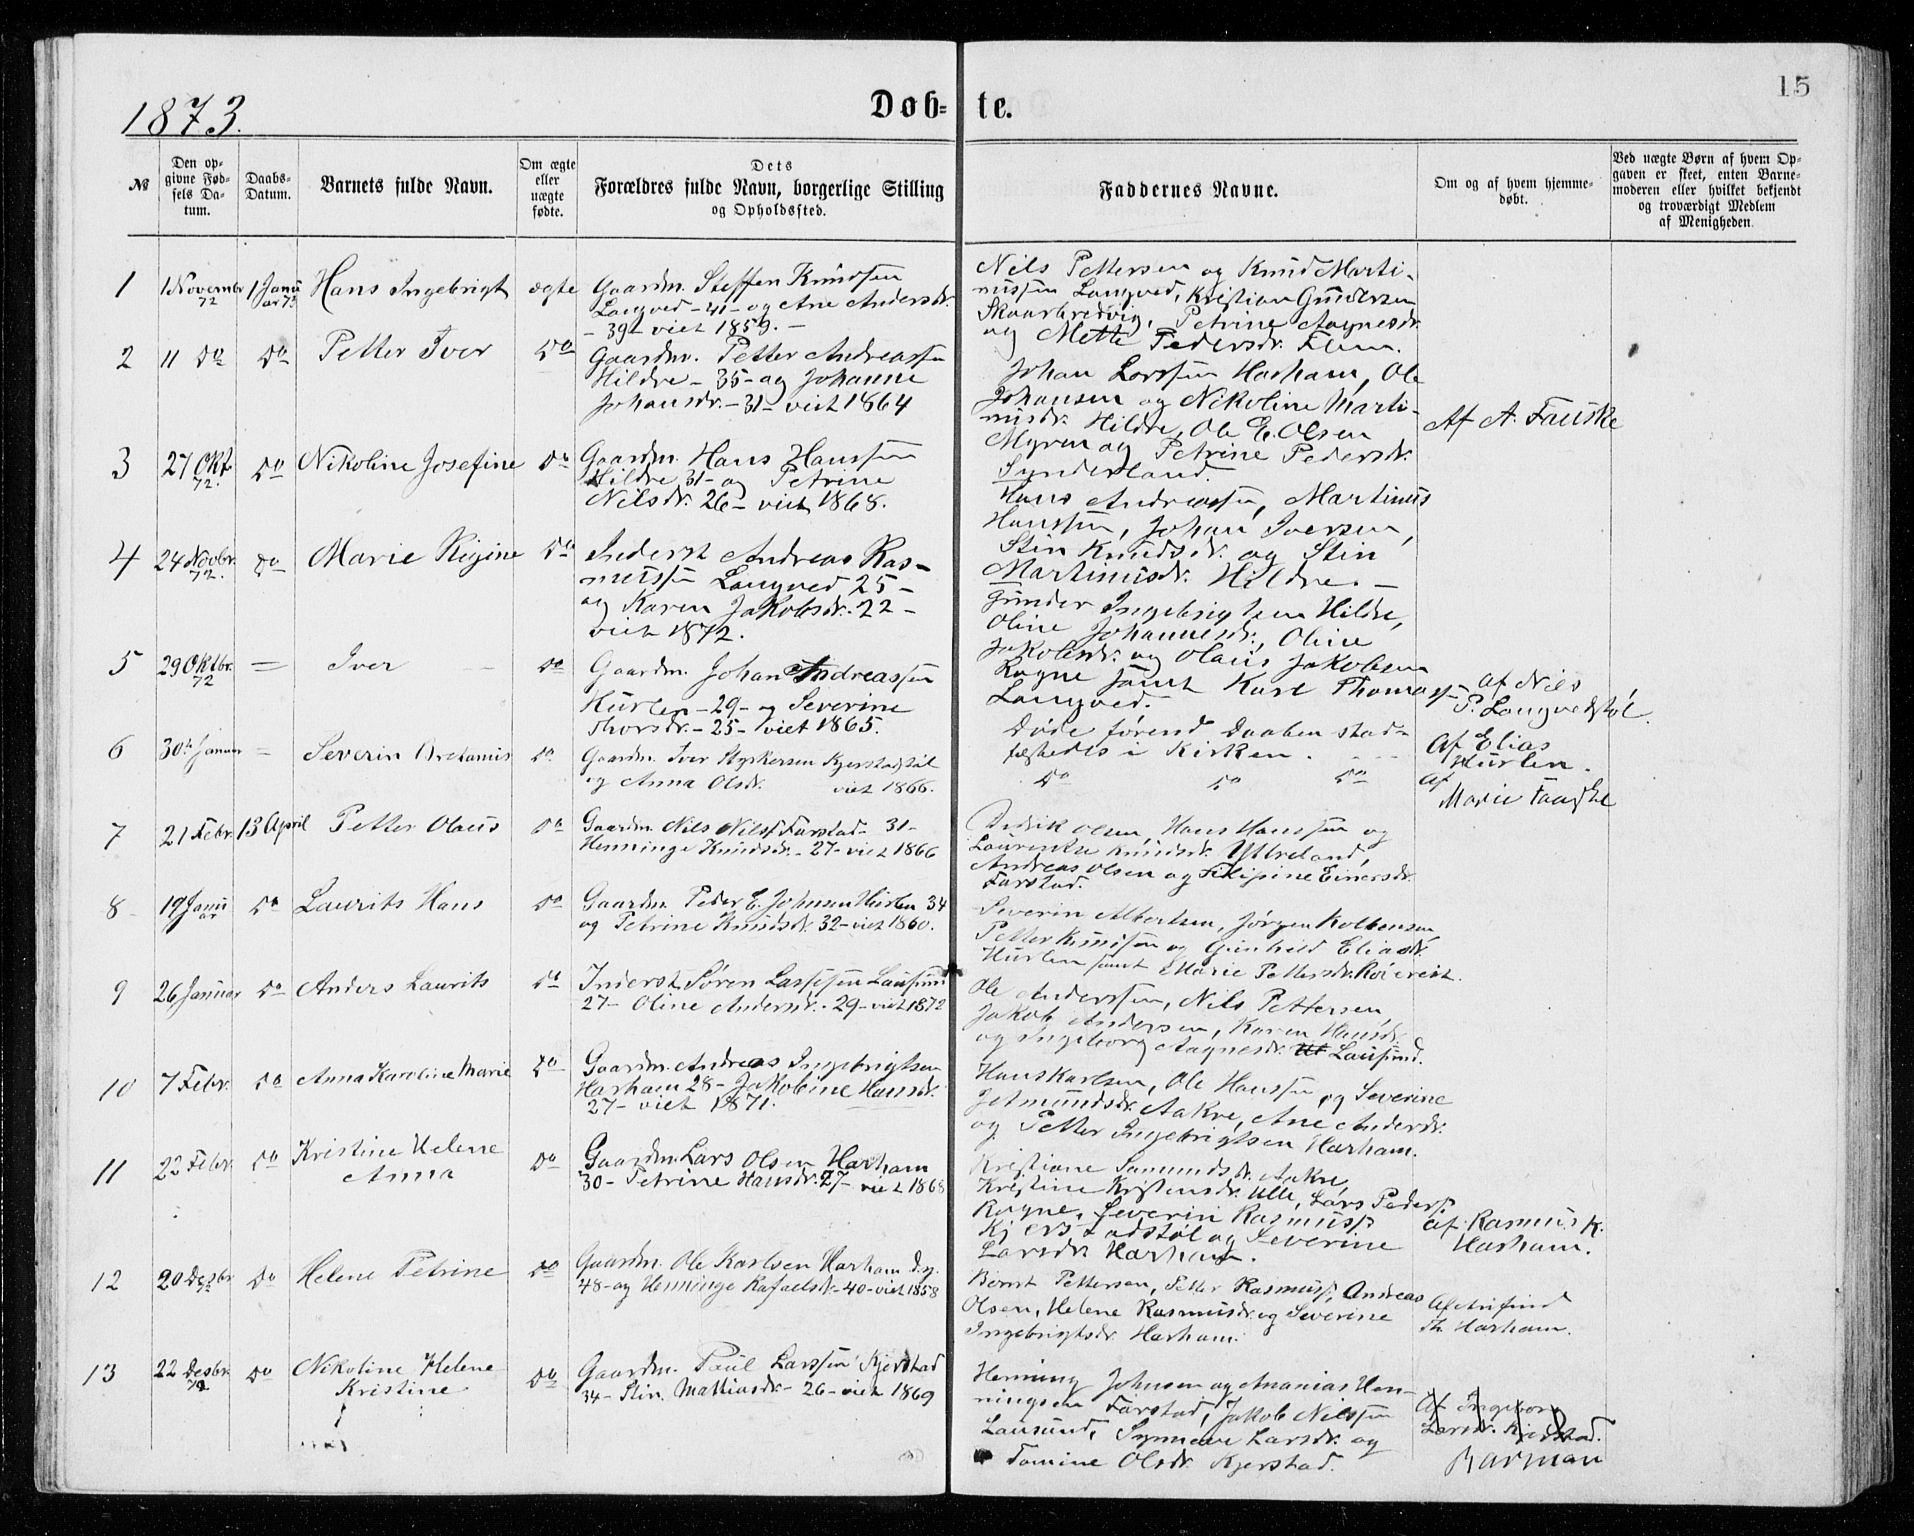 15
1873.
Døb- te.
№
Den op-
givne Fød-
sels Da-
tum.
Daabs-
Datum.
Barnets fulde Navn.
Om ægte
eller
uægte
fødte.
Dets
Forældres fulde Navn, borgerlige Stilling
og Opholdssted.
Faddernes Navne.
Om og af hvem hjemme-
døbt.
Ved uægte Børn af hvem Op-
gaven er skeet, enten Barne-
moderen eller hvilket bekjendt
og troværdigt Medlem
af Menigheden.
1
1 Novembr
72
1 Janu
ar 73
Hans Ingebrigt
ægte
Gaardm. Steffen Knudsen
Longved - 41 - og Ane Andersdr.
- 39 - viet 1859. -
Nils Pettersen og Knud Marti-
nussen Longved, Kristian Gundersen
Skaarbredvig, Petrine Aagnesdr.
og Mette Pedersdr. Flem.
2
11 Do
Do
Petter Iver
Do
Gaardm. Petter Andreassen
Hildre - 35 - og Johanne
Johansdr. - 31 - viet 1864
Johan Larssen Harham, Ole
Johansen og Nikoline Marti-
nusdr. Hildre, Ole E. Olsen
Myren og Petrine Pedersdr.
Synderland.
Af A. Fauske
3
27 Okt.
72.
Do
Nikoline Josefine
Do
Gaardm. Hans Hanssen
Hildre 31 - og Petrine
Nilsdr. 26 - viet 1868.
Hans Andreassen, Martinus
Hanssen, Johan Iversen,
Stin Knudsdr. og Stin
Martinusdr. Hildre. -
4
24 Novbr.
72.
Do
Marie Regine
Do
Inderst Andreas Ras-
mussen Longved 25 -
og Karen Jakobsdr. 22 -
viet 1872.
Gunder Ingebrigtsen Hildre,
Oline Johannesdr., Oline
Jakobsdr. og Olaus Jakobsen
Rogne samt Karl Thomassen
Longved.
5
29 Oktbr.
72
Iver
Do
Gaardm. Johan Andreassen
Hurlen - 29 - og Severine
Thorsdr. - 25 - viet 1865.
Døde førend Daaben stad-
fæstedes i Kirken.
af Nils
P. Longvedstøl.
6
30te Januar
Severin
Do
Gaardm. Iver Styrkersen Kjerstadstøl
og Anna Olsdr. viet 1866.
Do Do Do
Af Elias
Hurlen.
af
Marie Fauske
7
21 Febr.
13 April
Petter Olaus
Do
Gaardm. Nils Nilss. Farstad - 31 -
Henninge Knudsdr. - 27 - viet 1866
Didrik Olsen, Hans Hanssen og
Laurentse Knudsdr. Ytreland,
Andreas Olsen og Filipine Einersdr.
Farstad.
8
19 Janu
ar
Do
Laurits Hans
Do
Gaardm. Peder E. Johnsen Hurlen 34
og Petrine Knudsdr. 32 - viet 1860.
Severin Albertsen, Jørgen Kolbensen,
Petter Knudsen og Gunhild Eliasdr.
Hurlen samt Marie Pettersdr.
9
26 Januar
Do
Anders Laurits
Do
Inderst Søren Lassesen Lausund
27 - Oline Andersdr. - 29 - viet 1872
Ole Anderssen, Nils Pettersen,
Jakob Andersen, Karen Hansdr.
og Ingeborg Aagnesdr. Lausund.
10
7 Febr.
Do
Anna Karoline Marie
Do
Gaardm. Andreas Ingebrigtsen
Harham 28 - Jakobine Hansdr.
27 - viet 1871.
Hans Karlsen, Ole Hanssen og Severine
Jetmundsdr. Aakre, Ane Andersdr.
og Petter Ingebrigtsen Harham.
11
22 Febr.
Do
Kristine Helene
Anna
Do
Gaardm. Lars Olsen Harham
30 - Petrine Hansdr. 27 - viet 1868
Kristiane Samundsdr. Aakre,
Kristine Kristensdr. Ulle, Lars Peders.
Rogne, Severin Rasmuss.
Kjerstadstøl og Severine
Larsdr. Harham.
af Rasmus K.
Harham.
12
20 Desbr.
72
Do
Helene Petrine
Do
Gaardm. Ole Karlsen Harham
48 - og Henninge Rafaelsdr. - 40 - viet 1858
Bernt Pettersen, Petter Rasmuss. Andreas
Olsen, Helene Rasmusdr. og Severine
Ingebrigtsdr. Harham.
Th. Harham.
13
22 Desbr.
72
Do
Nikoline Helene
Kristine
Do
Gaardm. Paul Larssen Kjerstad
34 - Stin Mattiasdr. - 26 - viet 1869
Henning Johnsen og Ananias Hen-
ningsen Farstad, Jakob Nilssen
Lausund, Synneve Larsdr. og
Tomine Olsdr. Kjerstad.
Af Ingeborg
Larsdr. Kjerstad.